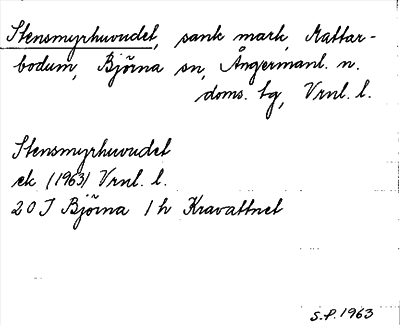 Stensmyrhuvudet, sank mark, Mattar-
bodum, Björna sn, Ångermanl. n.
doms. tg, Vrnl. l.
Stensmyrhuvudet
ek (1963) Vrnl. l.
20 J Björna 1 h Kravattnet
S.P. 1963